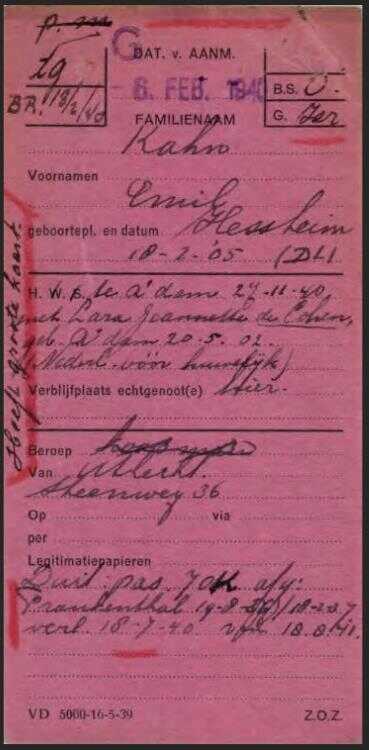 p. m
tg
BR. 18/2/40
G
DAT. v. AANM.
- 6 FEB. 1940
B.S. O.
G. Isr
FAMILIENAAM
Kahn
Voornamen
Emil
Hessheim
geboortepl. en datum
18-2-'05 (DL)
H. W. S. te A'dam 27-11-40
met Zara Jeannette de Cohen,
geb. A'dam 20-5-02.
(Nederl. vóór huwelijk)
Verblijfplaats echtgenoot(e) hier.
Heeft groote kaart
Beroep koopman
Van Utrecht.
Steenweg 36
Op via
per
Legitimatiepapieren
Duit. pas. 7 afg.
Frankenthal 19-8
verl. 18-7-40 18.8.41.
VD 5000-16-5-39
Z.O.Z.